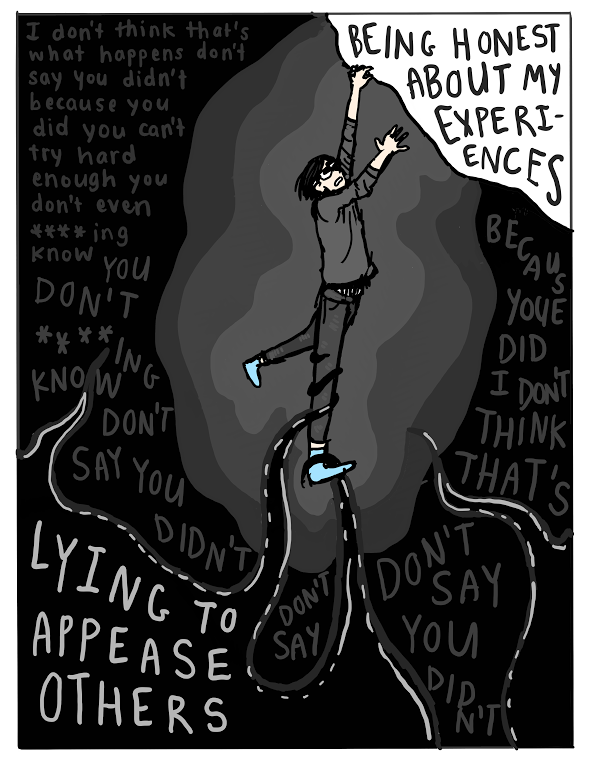 I don't think that's
what happens don't
say you didn't
because you
did you can't
try hard
enough you
don't even
****ing
know YOU
DON'T
****ING
KNOW
DON'T
SAY YOU
DIDN'T
BEING HONEST
ABOUT MY
EXPERI-
ENCES
BECAUS
YOUE
DID
I DON'T
THINK
THAT'S
DON'T
SAY
YOU
DID
N'T
DON'T
SAY
LYING TO
APPEASE
OTHERS